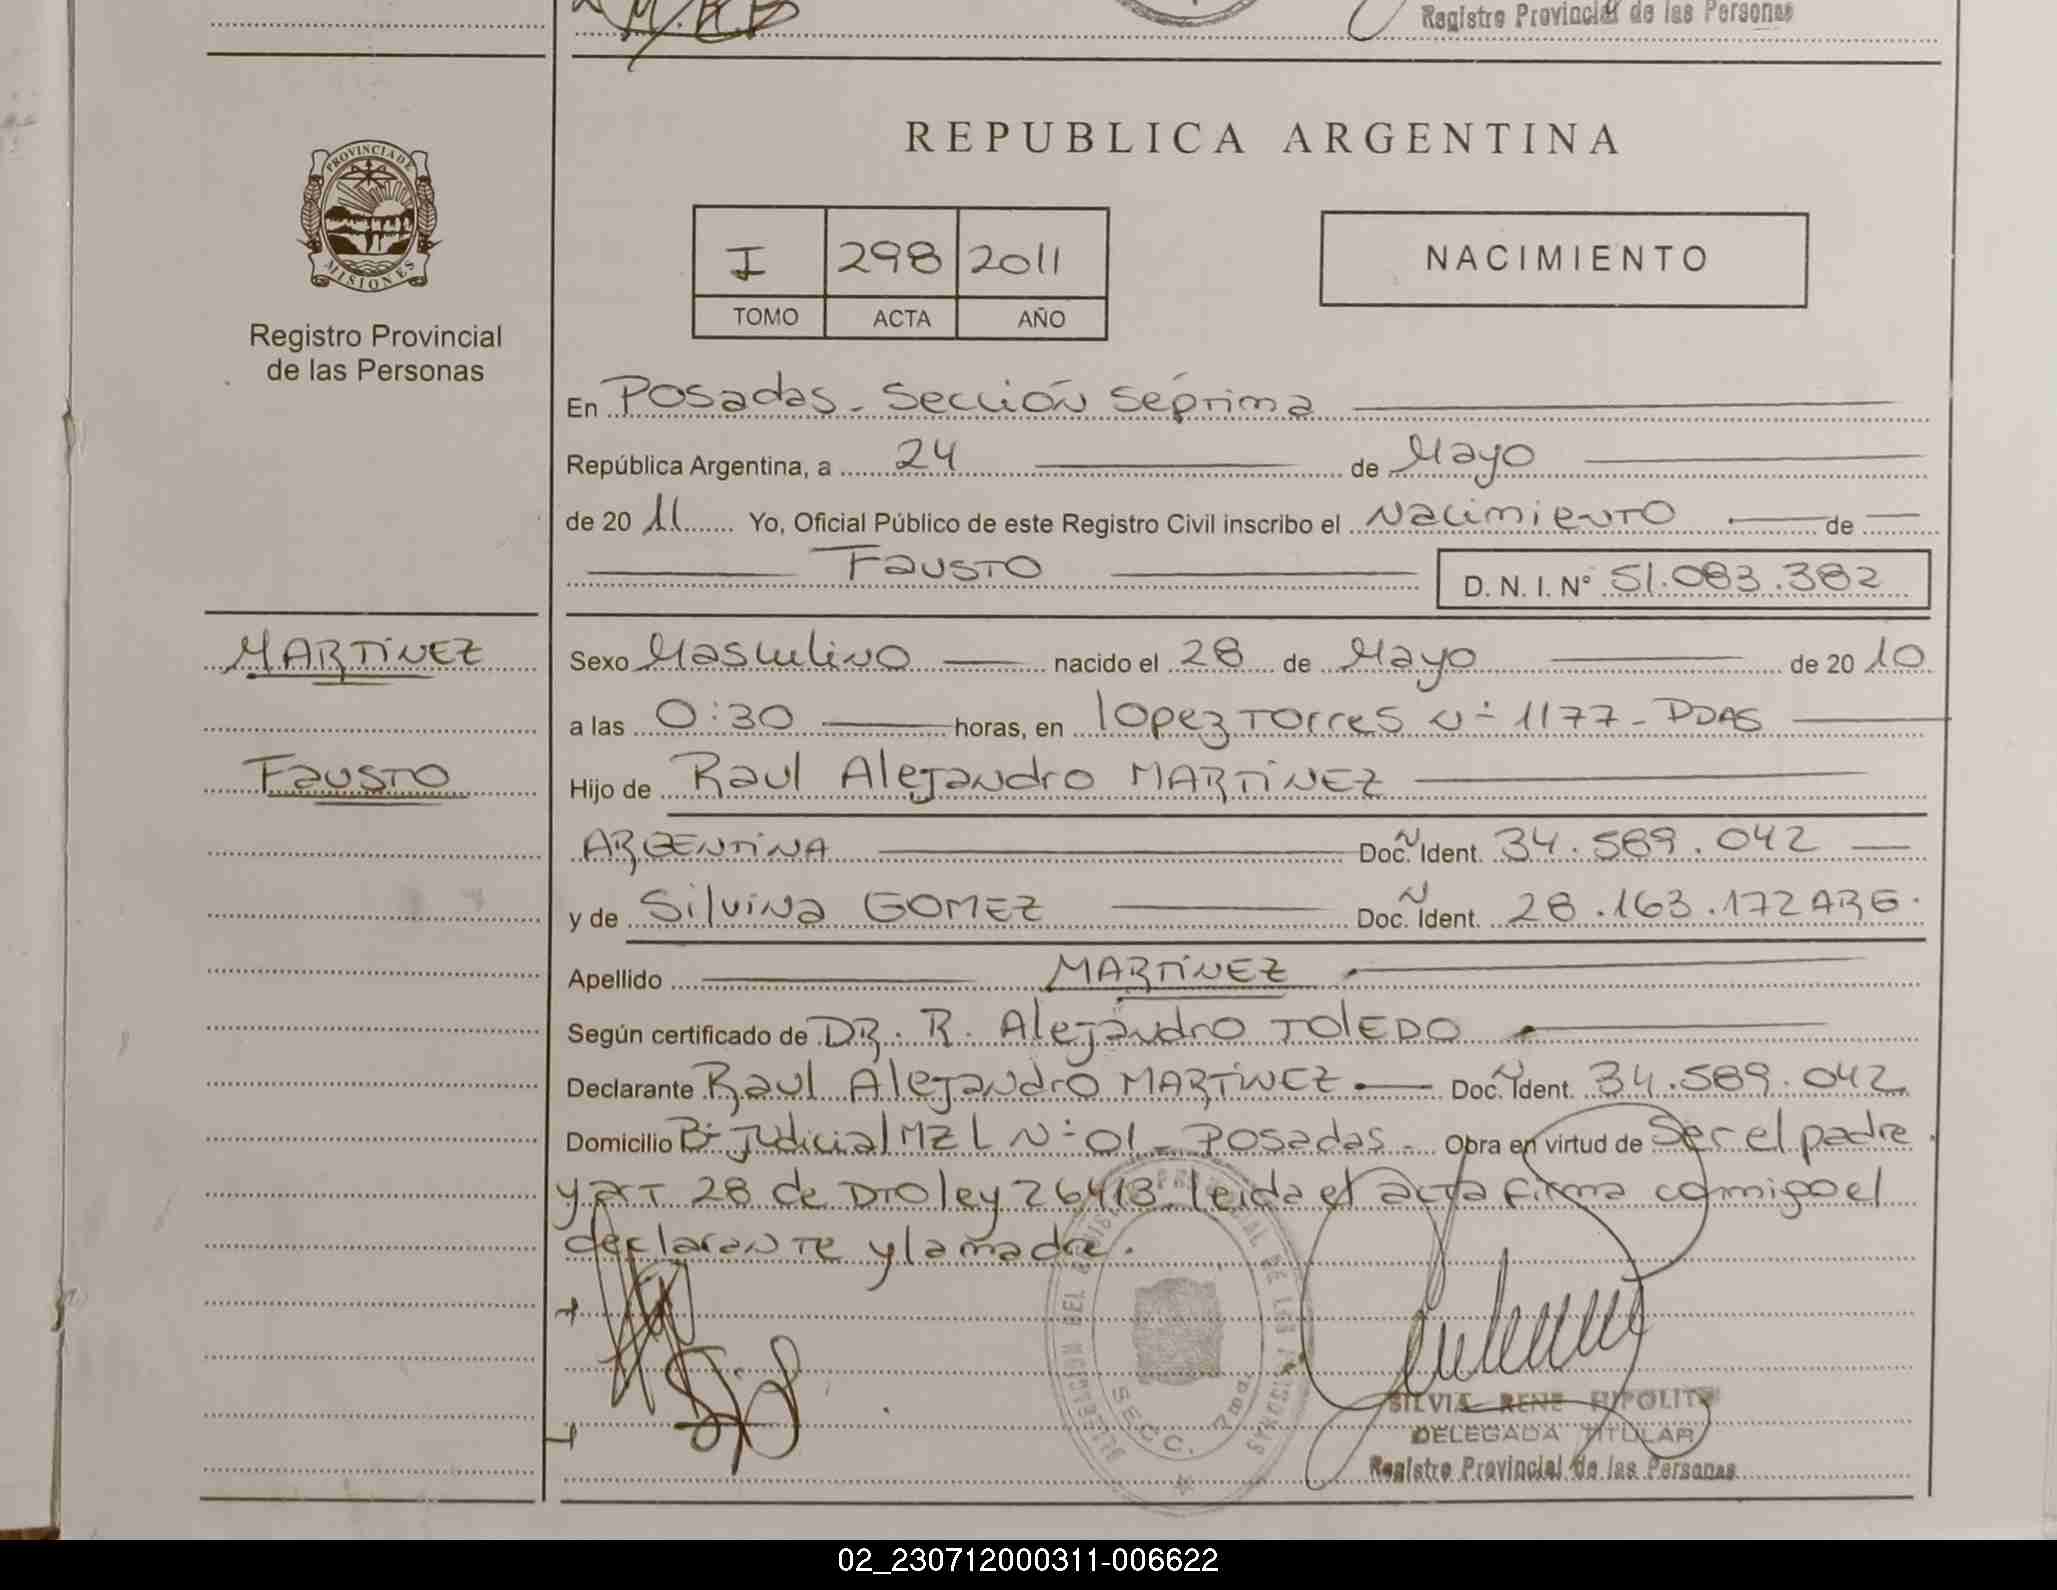 Registro Provincial de las Personas
PROVINCIA DE
MISIONES
Registro Provincial
de las Personas
REPUBLICA ARGENTINA
I 298 2011
TOMO ACTA AÑO
NACIMIENTO
En Posadas - Sección Séprima
República Argentina, a 24 de Mayo
de 20 11 Yo, Oficial Público de este Registro Civil inscribo el Nacimiento de
Fausto
D. N. I. N° 51.083.382
MARTÍNEZ
Fausto
Sexo Masculino nacido el 28 de Mayo de 20 10
a las 0:30 horas, en lopez Torres N° 1177 - PDAS
Hijo de Raul Alejandro MARTÍNEZ
ARGENTINA Doc. Ident. 34.589.042
y de Silvina GOMEZ Doc. Ident. 28.163.172 ARG.
Apellido MARTÍNEZ
Según certificado de DR. R. Alejandro TOLEDO
Declarante Raul Alejandro MARTINEZ Doc. Ident. 34.589.042
Domicilio B° Judicial MZ L N° 01 - Posadas - Obra en virtud de Ser el padre
y art. 28 de DTO ley 26413. leida el acta firma conmigo el
declarante y la madre.
SECC. 7ma.
SILVIA RENE HIPOLITO
DELEGADA TITULAR
Registro Provincial de las Personas
02_230712000311-006622